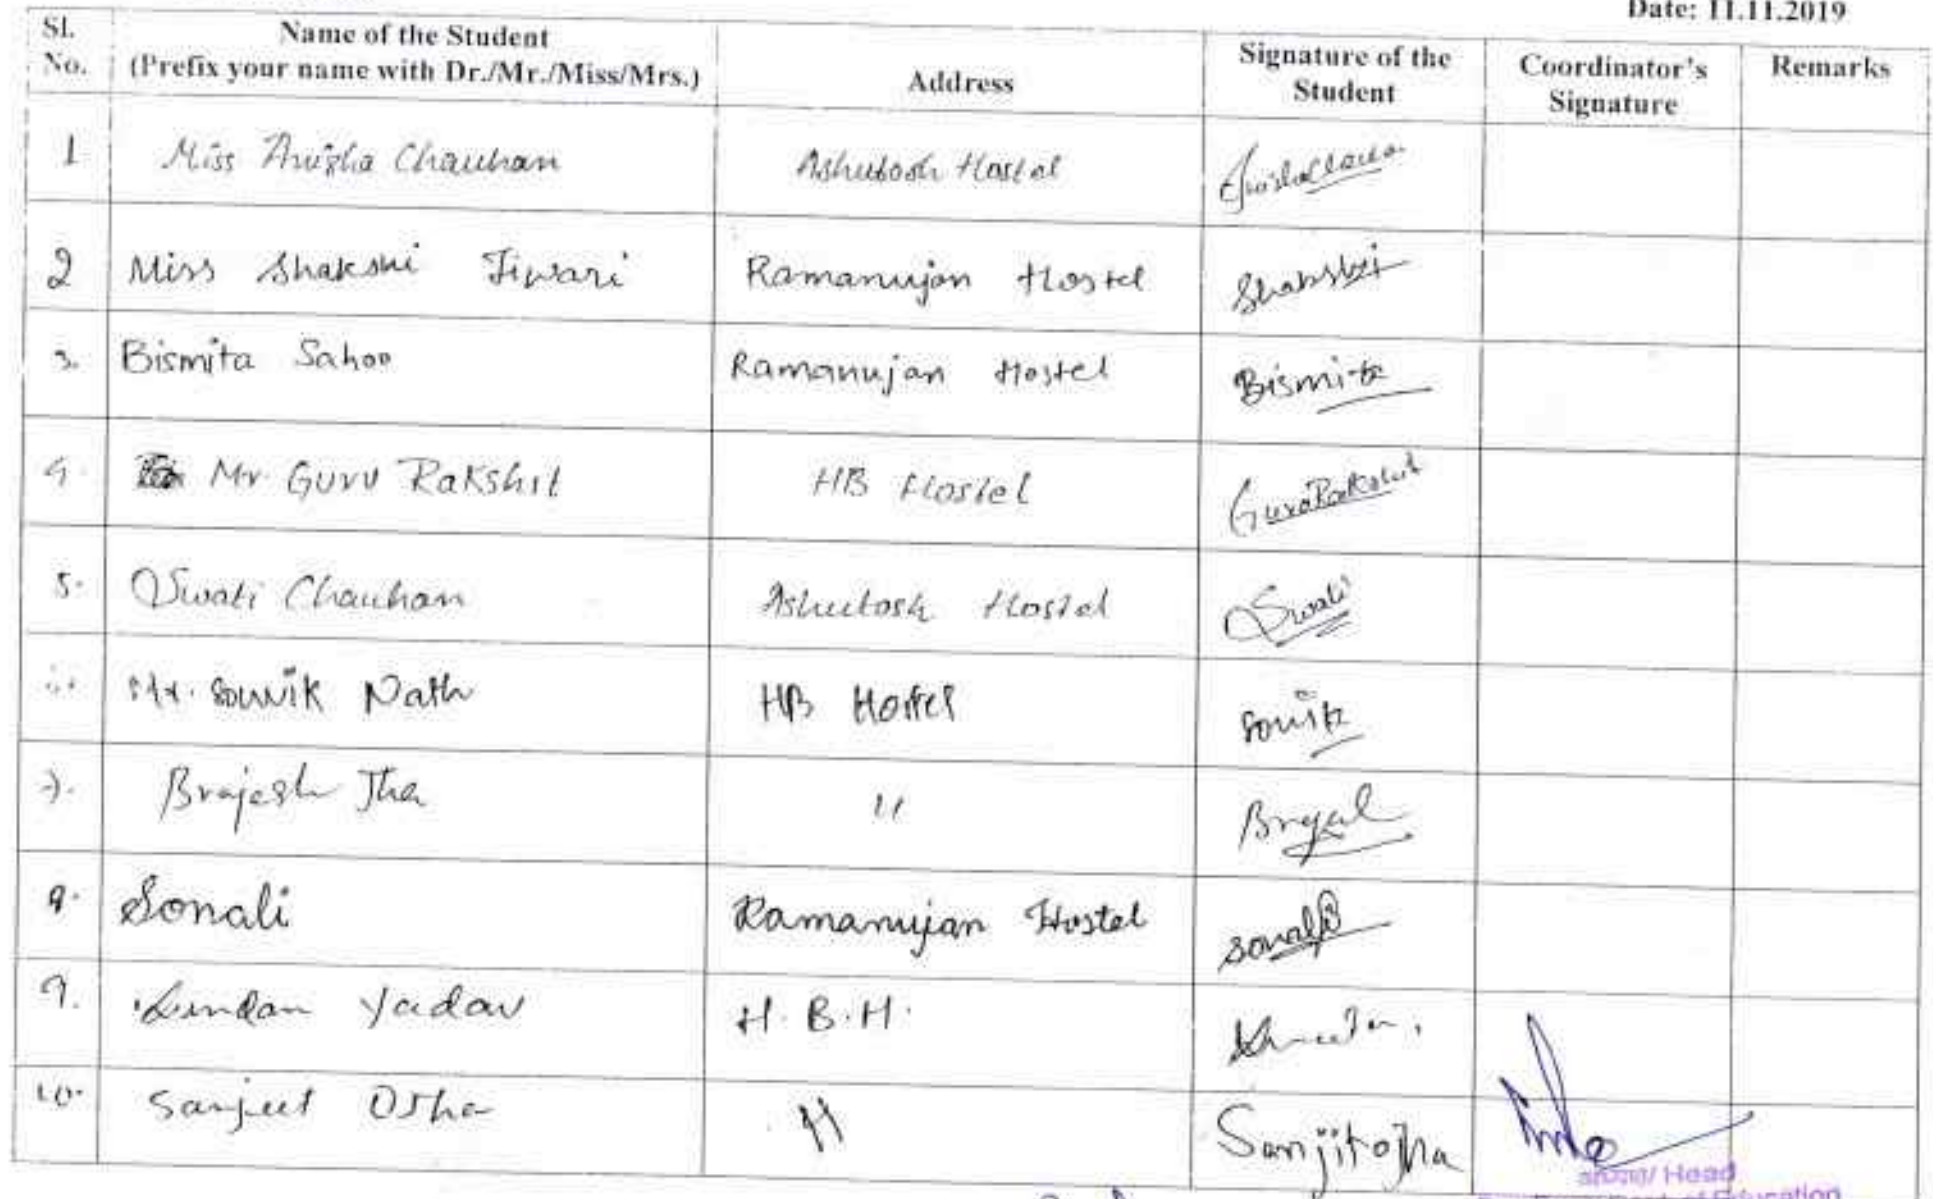 Date: 11.11.2019
Sl. No. Name of the Student (Prefix your name with Dr./Mr./Miss/Mrs.) Address Signature of the Student Coordinator's Signature Remarks
1 Miss Anisha Chauhan Ashutosh Hostel
2 Miss Shakshi Tiwari Ramanujan Hostel Shakshi
3. Bismita Sahoo Ramanujan Hostel Bismita
4. Mr. Guru Rakshit HB Hostel Guru Rakshit
5. Swati Chauhan Ashutosh Hostel Swati
Mr. Souvik Nath HB Hostel Souvik
7. Brajesh Jha "
8. Sonali Ramanujan Hostel Sonali
9. Kundan Yadav H.B.H.
10. Sanjeet Ojha " Sanjit Ojha
/ Head
Education